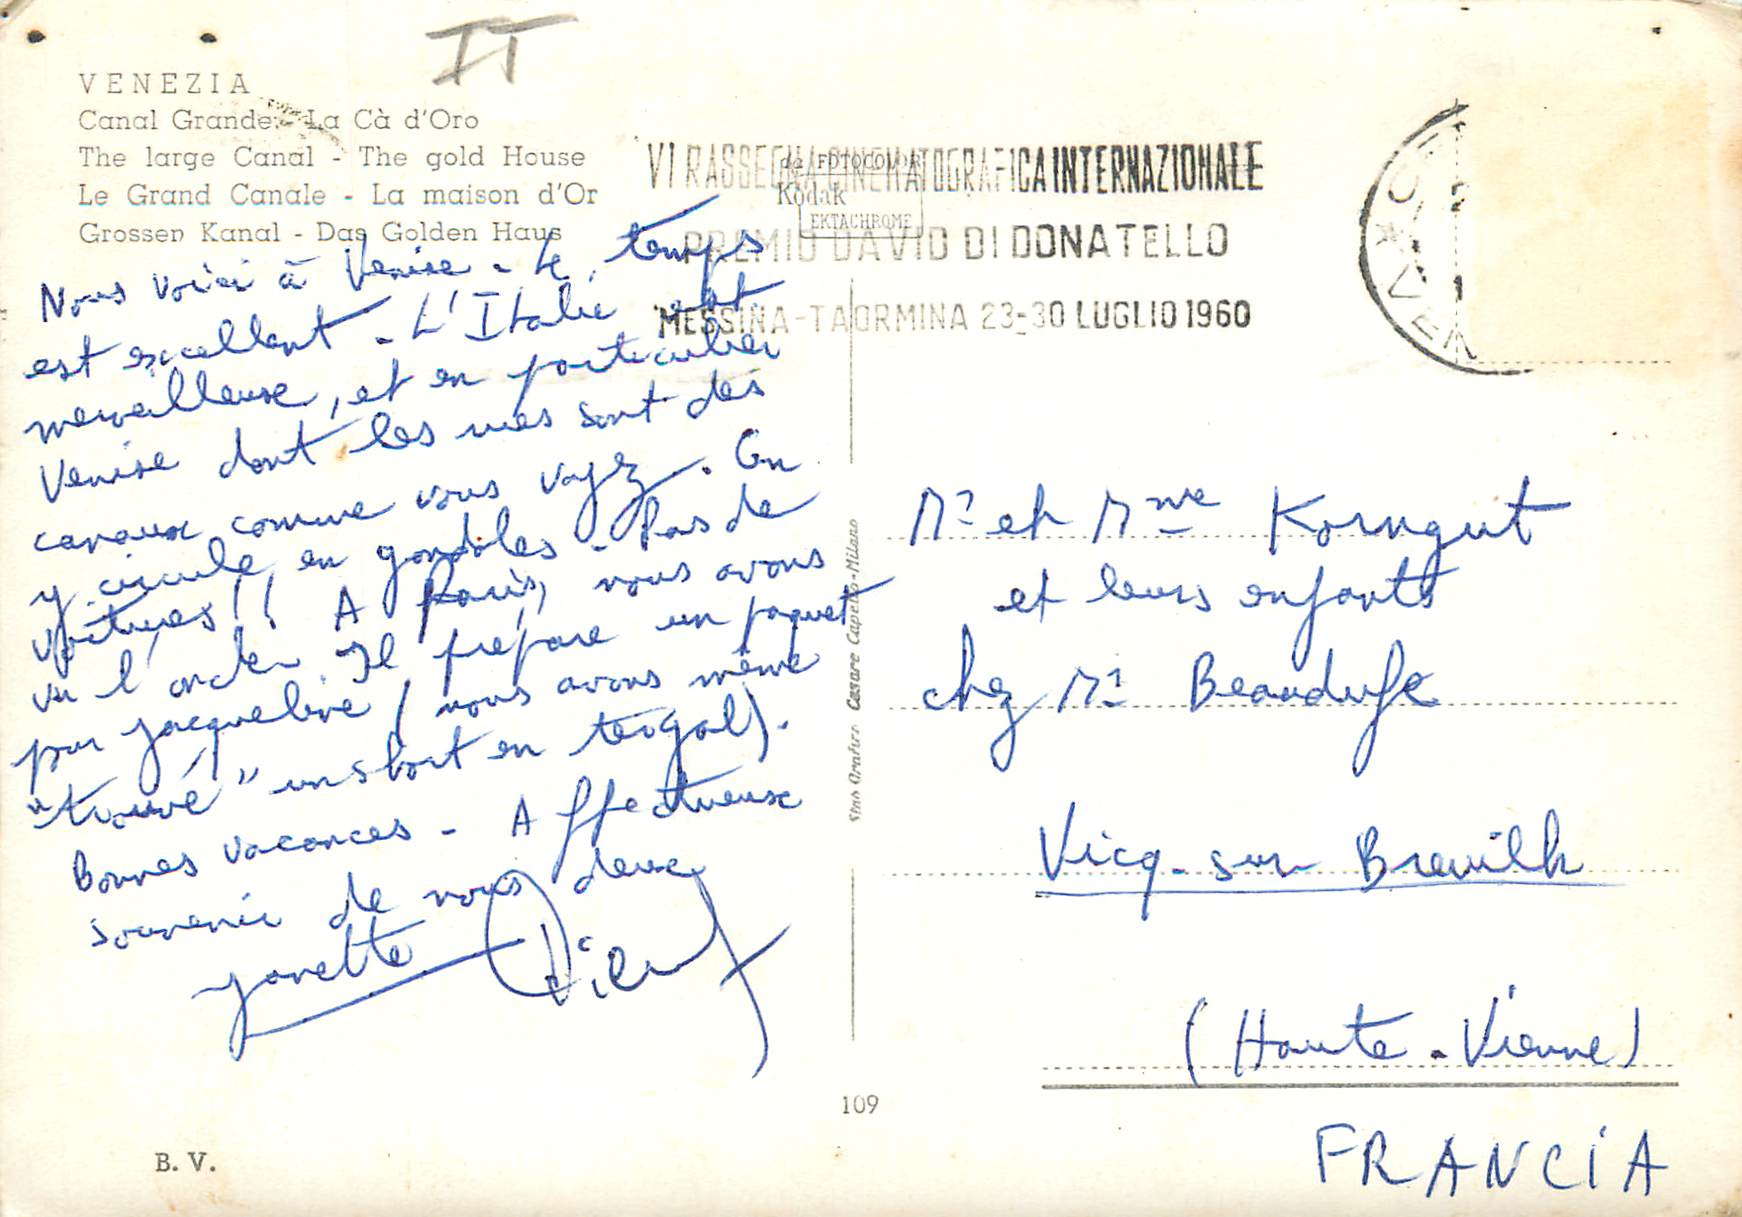 IT
VENEZIA
Canal Grande - La Cà d'Oro
The large Canal - The gold House
Le Grand Canale - La maison d'Or
Grossen Kanal - Das Golden Haus
VI RASSEGNA CINEMATOGRAFICA INTERNAZIONALE
PREMIO DAVID DI DONATELLO
MESSINA-TAORMINA 23-30 LUGLIO 1960
da FOTOCOLOR
Kodak
EKTACHROME
Nous voici à Venise - Le temps
est excellent - L'Italie est
merveilleuse, et en particulier
Venise dont les rues sont des
canaux comme vous voyez. On
y circule en gondoles - Pas de
voitures!! A Paris, nous avons
vu l'oncle. Il prépare un paquet
pour Jacqueline (nous avons même
"trouvé" un short en tergal).
Bonnes vacances - Affectueux
souvenir de nous deux
Yonette
Mr et Mme Korngut
et leurs enfants
chez Mr Beaudufe
Vicq-sur Breuilh
(Haute-Vienne)
FRANCIA
Cesare Capello-Milano
109
B. V.